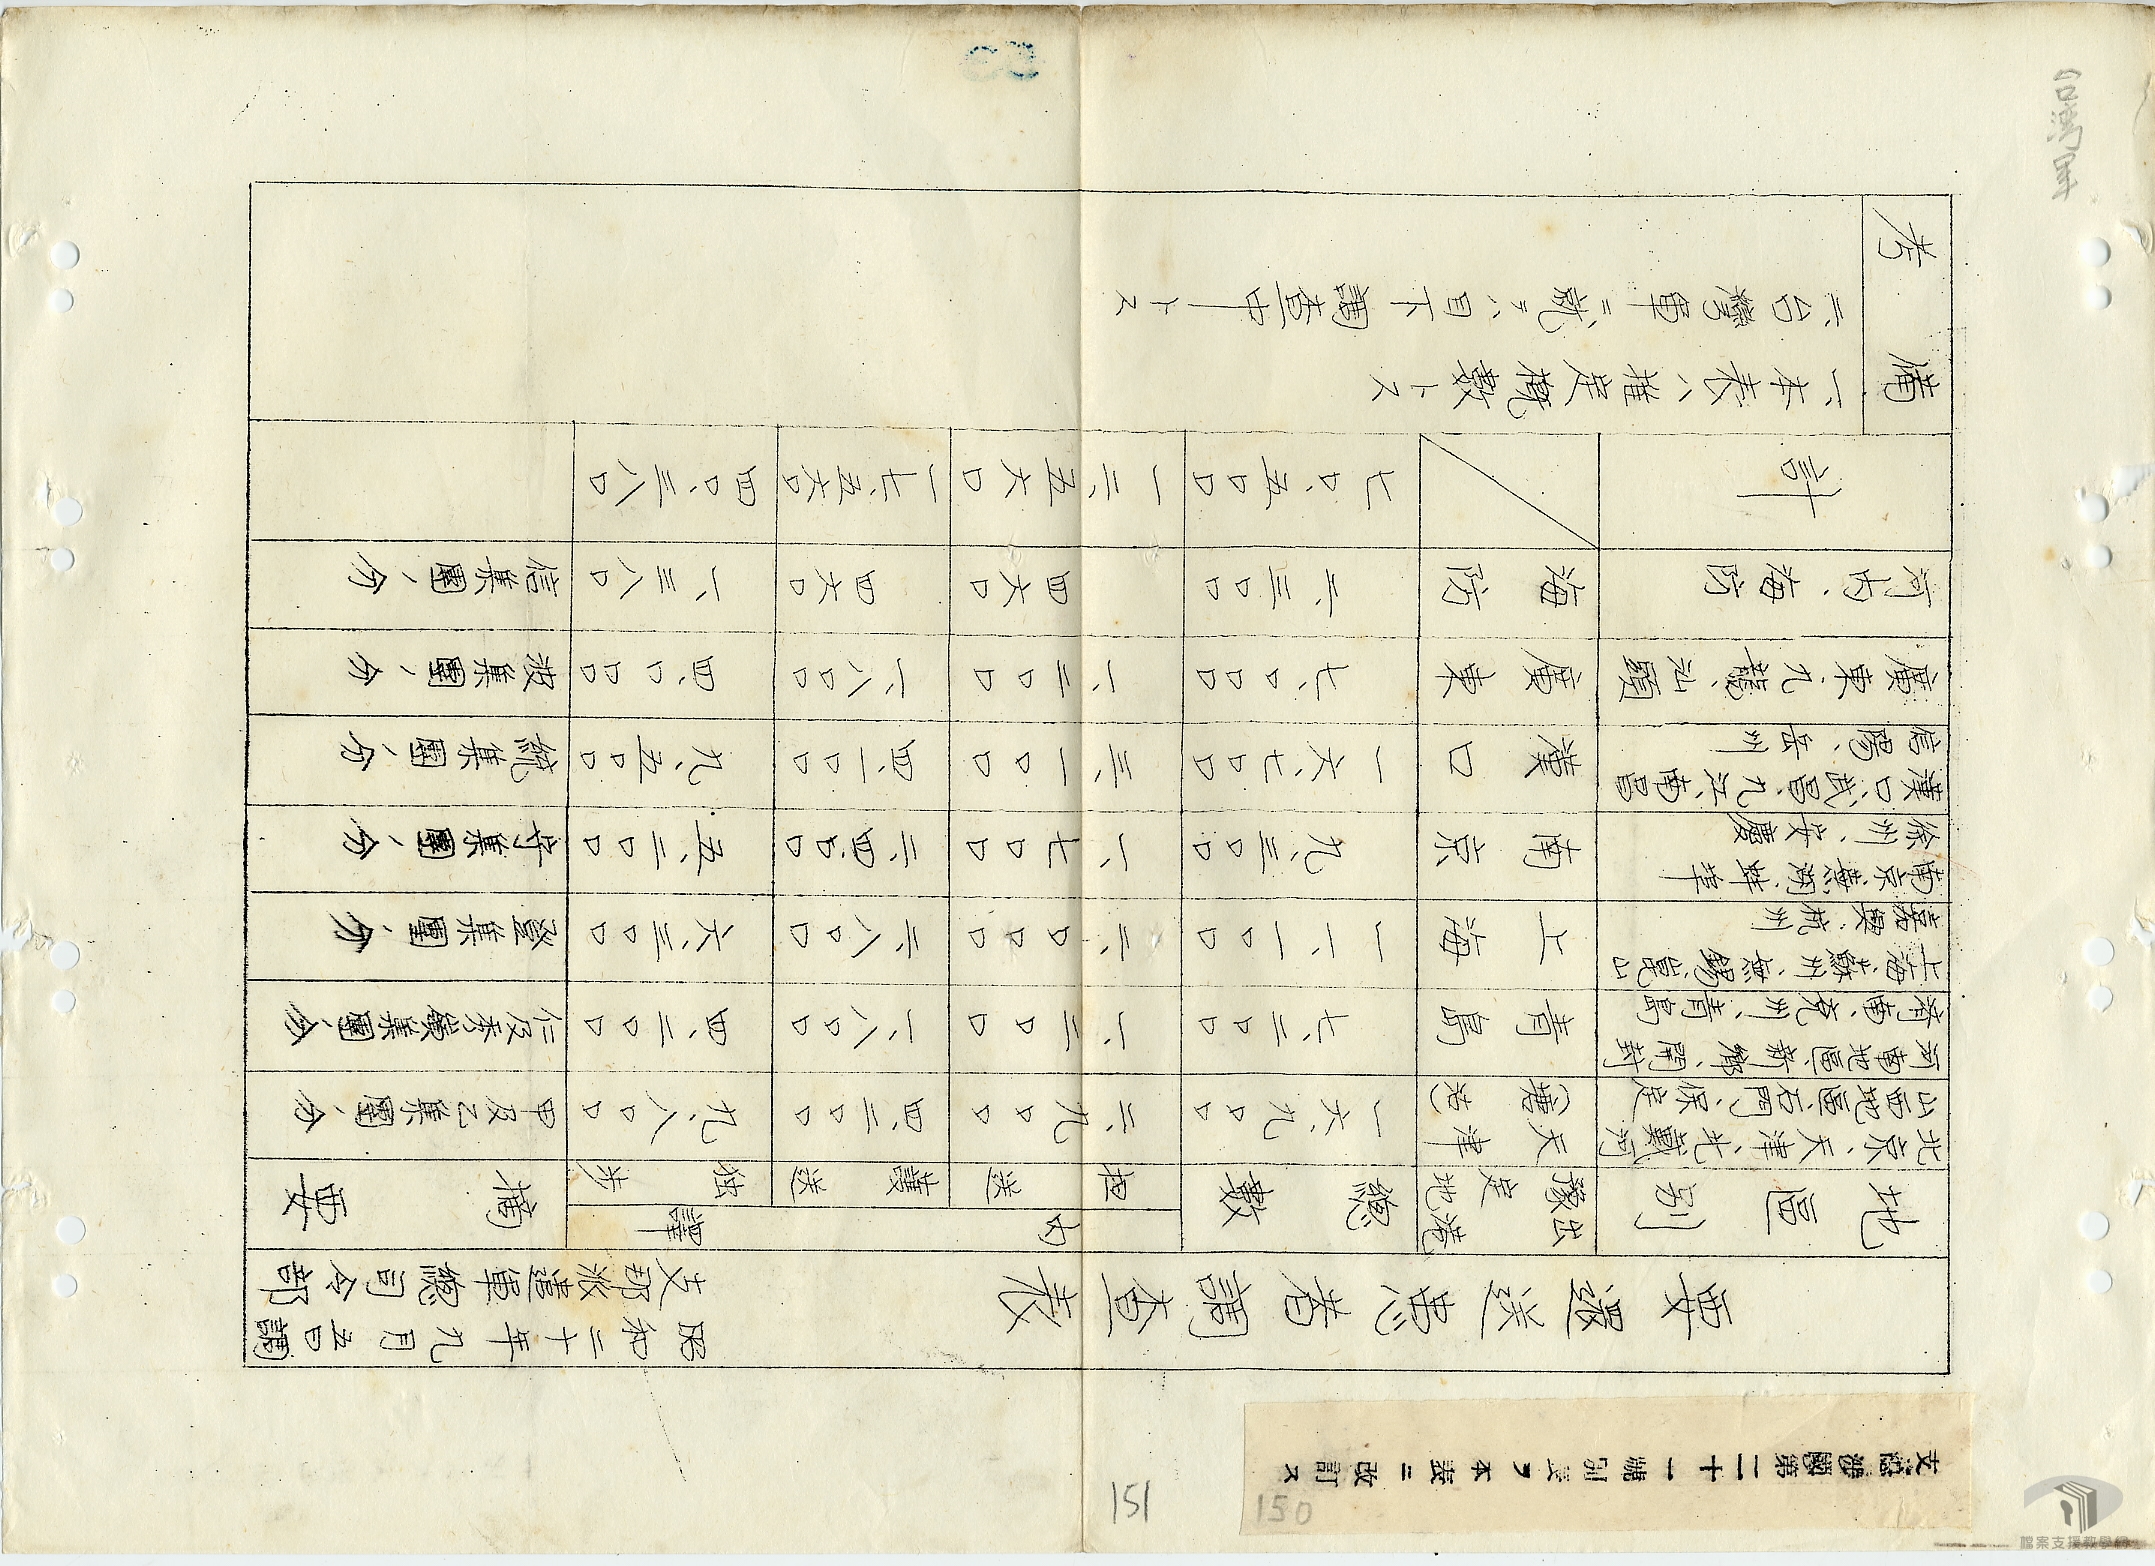 第二十一號別表ヲ本表ニ改訂ス
要還送患者調査表
昭和二十年九月五日調
支那派遣軍總司令部
地區別
豫定出港地
總數
内譯
担送
護送
独歩
摘要
北京、天津、北戴河
山西地區、石門、保定
天津
(塘沽)
一六、九〇〇
二、九〇〇
四、二〇〇
九、八〇〇
甲及乙集團ノ分
河南地區、新鄉、開封
濟南、兗州、青島
青島
七、二〇〇
一、二〇〇
一、八〇〇
四、二〇〇
仁及秀嶺集團ノ分
上海、蘇州、無錫、崑山
嘉興、杭州
上海
一一、一〇〇
二、〇〇〇
二、八〇〇
六、三〇〇
登集團ノ分
南京、蕪湖、蚌埠
徐州、安慶
南京
九、三〇〇
一、七〇〇
二、四〇〇
五、二〇〇
集團ノ分
漢口、武昌、九江、南昌
信陽、岳州
漢口
一六、七〇〇
三、一〇〇
四、一〇〇
九、五〇〇
統集團ノ分
廣東、九龍、汕頭
廣東
七、〇〇〇
一、二〇〇
一、八〇〇
四、〇〇〇
波集團ノ分
河内、海防
海防
二、三〇〇
四六〇
四六〇
一、三八〇
信集團ノ分
計
七〇、五〇〇
一二、五六〇
一七、五六〇
四〇、三八〇
備考
一、本表ハ推定概數トス
二、台灣軍ニ就テハ目下調査中トス
台灣軍
151
150
檔案支援教學網